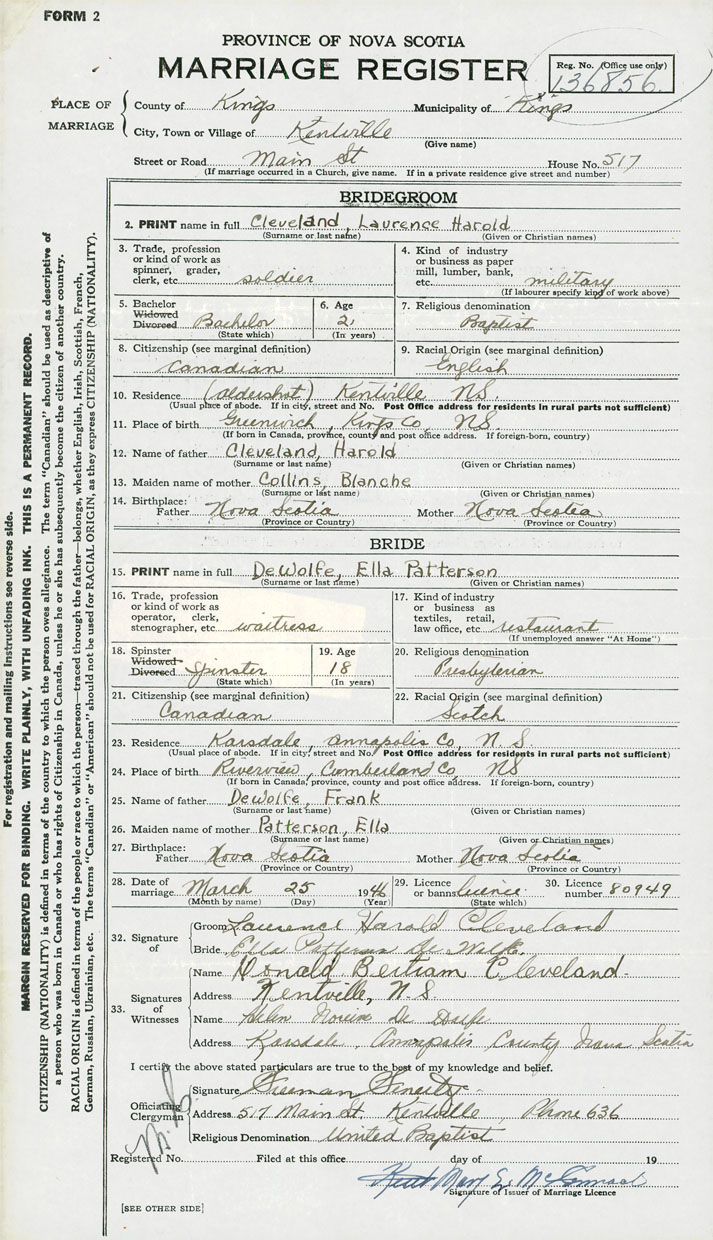 FORM 2
PROVINCE OF NOVA SCOTIA
MARRIAGE REGISTER
Reg. No. (Office use only)
136856
PLACE OF MARRIAGE
County of Kings Municipality of Kings
City, Town or Village of Kentville
(Give name)
Street or Road Main St House No. 517
(If marriage occurred in a Church, give name. If in a private residence give street and number)
BRIDEGROOM
2. PRINT name in full Cleveland, Laurence Harold
(Surname or last name) (Given or Christian names)
3. Trade, profession or kind of work as spinner, grader, clerk, etc. soldier
4. Kind of industry or business as paper mill, lumber, bank, etc. military
(If labourer specify kind of work above)
5. Bachelor Widowed Divorced Bachelor
(State which)
6. Age
(In years)
7. Religious denomination
Baptist
8. Citizenship (see marginal definition)
Canadian
9. Racial Origin (see marginal definition)
English
10. Residence (Aldershot) Kentville NS.
(Usual place of abode. If in city, street and No. Post Office address for residents in rural parts not sufficient)
11. Place of birth Greenwich, Kings Co, N.S.
(If born in Canada, province, county and post office address. If foreign-born, country)
12. Name of father Cleveland, Harold
(Surname or last name) (Given or Christian names)
13. Maiden name of mother Collins, Blanche
(Surname or last name) (Given or Christian names)
14. Birthplace: Father Nova Scotia Mother Nova Scotia
(Province or Country) (Province or Country)
BRIDE
15. PRINT name in full DeWolfe, Ella Patterson
(Surname or last name) (Given or Christian names)
16. Trade, profession or kind of work as operator, clerk, stenographer, etc waitress
17. Kind of industry or business as textiles, retail, law office, etc. restaurant
(If unemployed answer "At Home")
18. Spinster Widowed Divorced Spinster
(State which)
19. Age
18
(In years)
20. Religious denomination
Presbyterian
21. Citizenship (see marginal definition)
Canadian
22. Racial Origin (see marginal definition)
Scotch
23. Residence Karsdale, Annapolis Co, N.S.
(Usual place of abode. If in city, street and No. Post Office address for residents in rural parts not sufficient)
24. Place of birth Riverview, Cumberland Co, NS
(If born in Canada, province, county and post office address. If foreign-born, country)
25. Name of father DeWolfe, Frank
(Surname or last name) (Given or Christian names)
26. Maiden name of mother Patterson, Ella
(Surname or last name) (Given or Christian names)
27. Birthplace: Father Nova Scotia Mother Nova Scotia
(Province or Country) (Province or Country)
28. Date of marriage March 25 1946
(Month by name) (Day) (Year)
29. Licence or banns licence
(State which)
30. Licence number 80949
32. Signature of
Groom Laurence Harold Cleveland
Bride Ella Patterson De Wolfe.
33. Signatures of Witnesses
Name Donald Bertram Cleveland
Address Kentville, N.S.
Name Helen De Wolfe
Address Karsdale, Annapolis County Nova Scotia
I certify the above stated particulars are true to the best of my knowledge and belief.
Officiating Clergyman
Signature Freeman Fenerty
Address 517 Main St. Kentville, Phone 636
Religious Denomination United Baptist
Registered No. Filed at this office day of 19
Signature of Issuer of Marriage Licence
[SEE OTHER SIDE]
For registration and mailing instructions see reverse side.
MARGIN RESERVED FOR BINDING. WRITE PLAINLY, WITH UNFADING INK. THIS IS A PERMANENT RECORD.
CITIZENSHIP (NATIONALITY) is defined in terms of the country to which the person owes allegiance. The term "Canadian" should be used as descriptive of
a person who was born in Canada or who has rights of Citizenship in Canada, unless he or she has subsequently become the citizen of another country.
RACIAL ORIGIN is defined in terms of the people or race to which the person—traced through the father—belongs, whether English, Irish, Scottish, French,
German, Russian, Ukrainian, etc. The terms "Canadian" or "American" should not be used for RACIAL ORIGIN, as they express CITIZENSHIP (NATIONALITY).